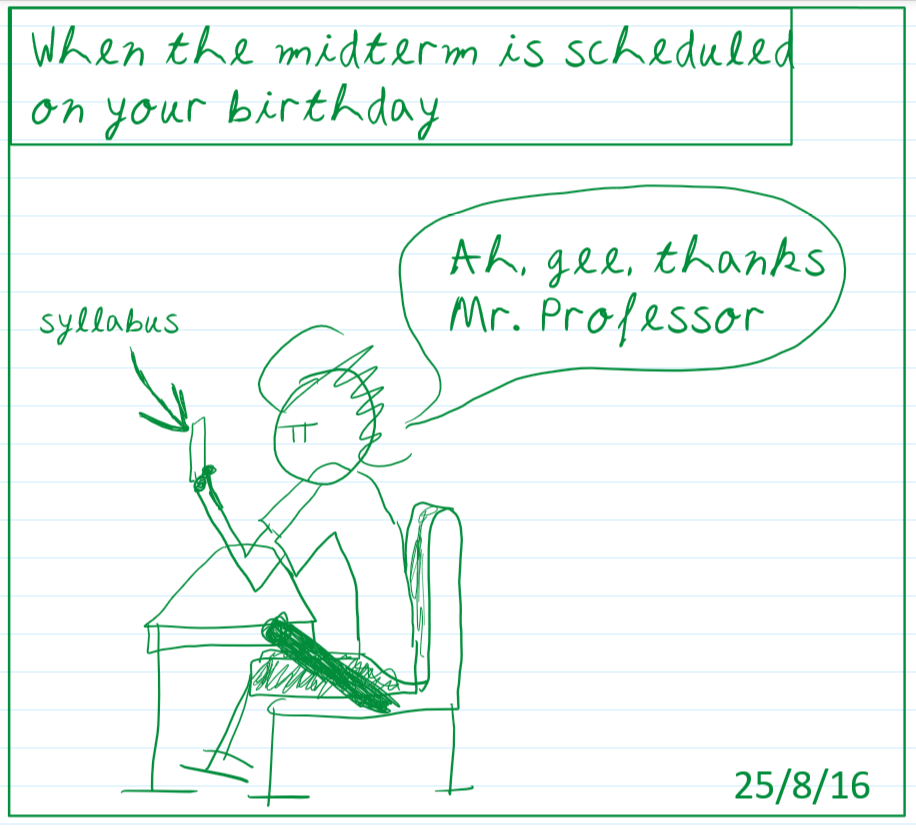 When the midterm is scheduled
on your birthday
Ah, gee, thanks
Mr. Professor
syllabus
25/8/16